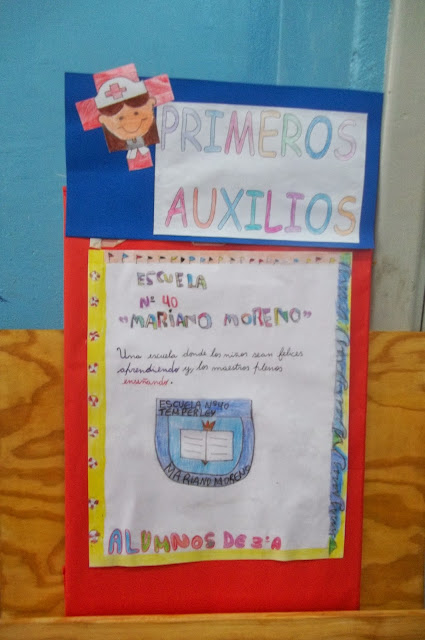 PRIMEROS
AUXILIOS
ESCUELA
Nº 40
"MARIANO MORENO"
Una escuela donde los niños sean felices
aprendiendo y los maestros plenos
enseñando.
ESCUELA Nº40
TEMPERLEY
MARIANO MORENO
ALUMNOS DE 3ºA